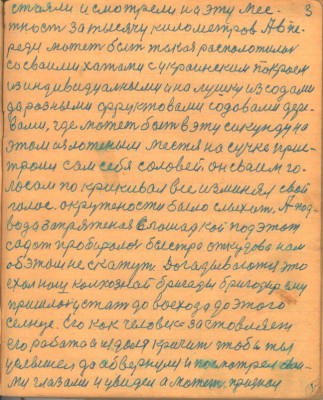 3
стояли и смотрели на эту мес-
ность за тысячу километров А впе-
реди может быть такая росположилася
со своими хатами с украинским покроем
и индивидуальными на лушку и содами
даровными фруктовами содовами дере-
вами, где может быть в эту сикунду на
этом излюленым местя на сучке прис-
троил сам себя соловей, он сваим го-
лосам покрикивал все изминял свой
голос. окружености было слыхат, А под-
вода запряженая лошадкой под этот
садот пробиралас быстро откудова нам
об этом не скажут. Догадываются это
ехал наш колхозной бригады бригадир ему
пришлос устат до восхода до этого
солнце. Его как человека заставляет
его работа издаля кричит чтобы ты
услышел да обвернулся и посмотрел сваи-
ми глазами и увидел а может признал